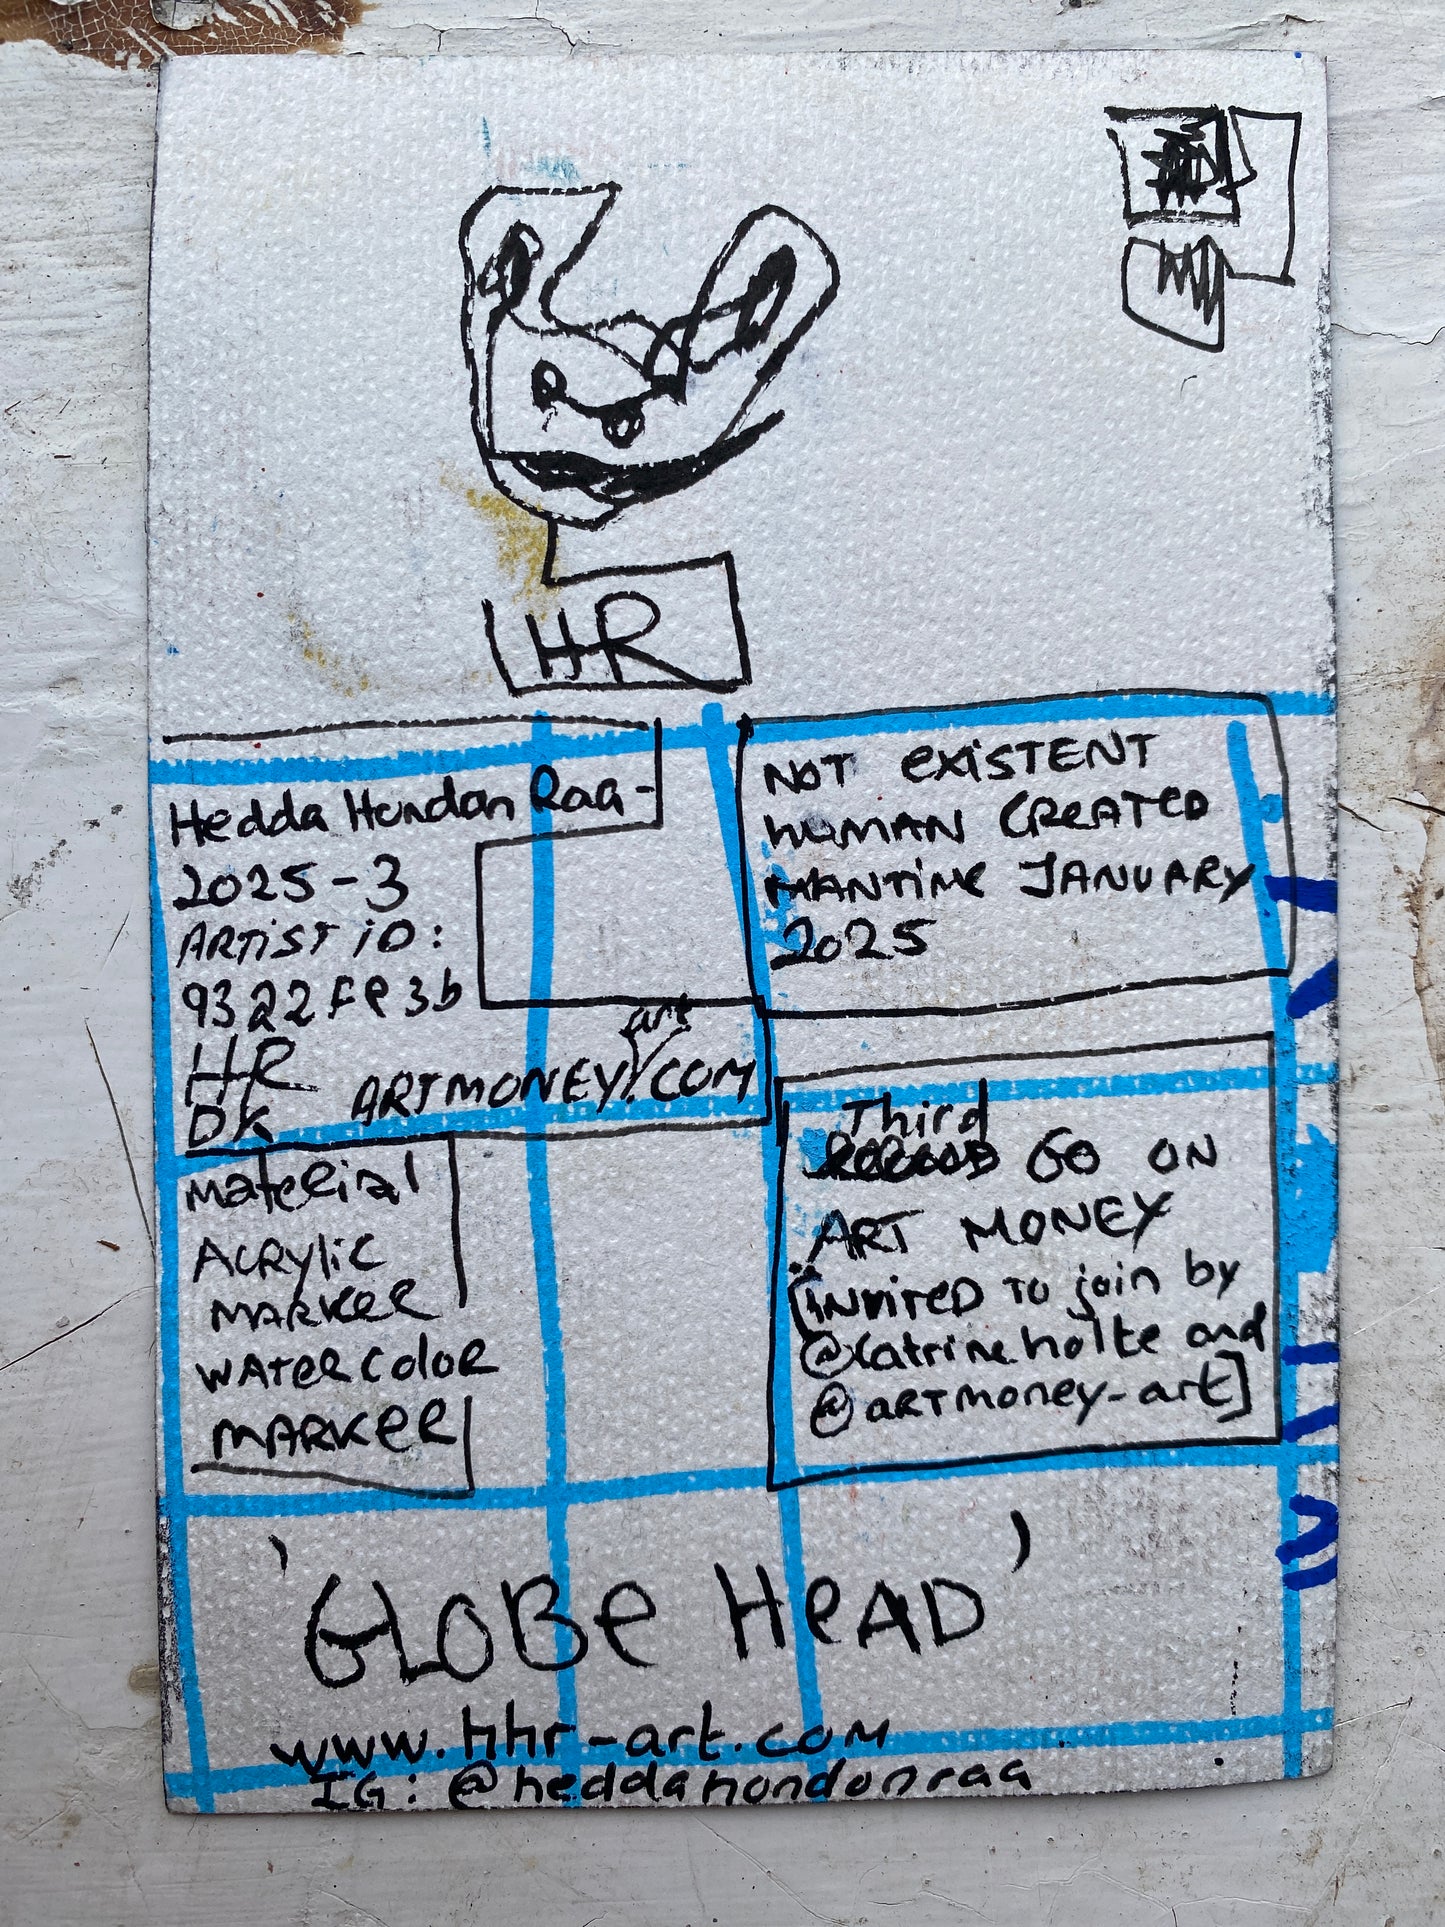 HR
Hedda Hondon Raa-
2025-3
ARTIST iD:
9322FE3b
HR
DK
ARTMONEY.COM
art
NOT EXISTENT
HUMAN CREATED
MANTIME JANUARY
2025
Third
GO ON
ART MONEY
[INVITED TO join by
@katrine.holte and
@ARTMONEY-art]
Material
ACRYliC
MARKER
WATERCOLOR
MARKER
'GLOBE HEAD'
www.hhr-art.com
IG: @heddahondonraa